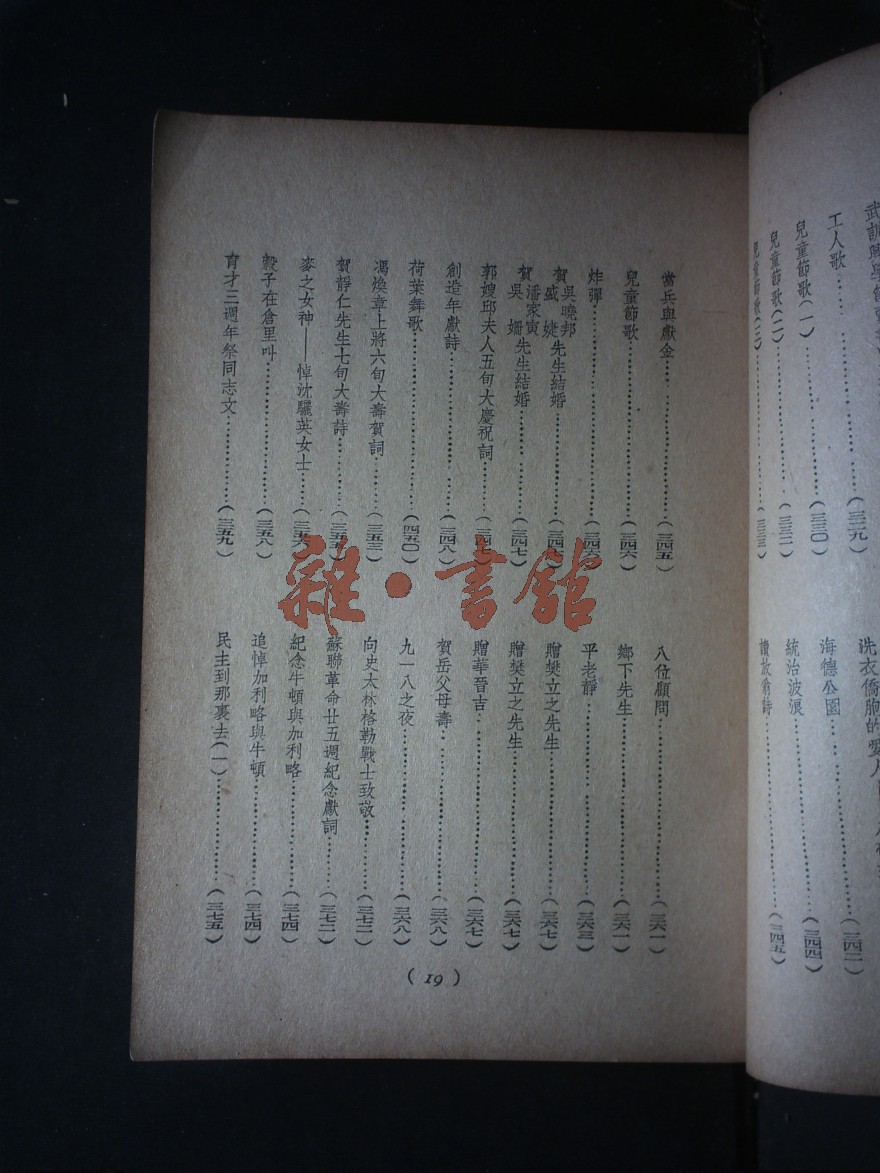 工人歌……(三二九)
兒童節歌(一)……(三三〇)
兒童節歌(二)……(三三二)
兒童節歌(三)……(三三三)
洗衣僑胞的愛人
海德公園……(三四二)
統治波浪……(三四四)
讀放翁詩……(三四五)
當兵與獻金……(三四五)
兒童節歌……(三四六)
炸彈……(三四六)
賀吳曉邦盛婕先生結婚……(三四六)
賀潘家寅吳姍先生結婚……(三四七)
郭嫂邱夫人五旬大慶祝詞……(三四七)
創造年獻詩……(三四八)
荷葉舞歌……(四五〇)
馮煥章上將六旬大壽賀詞……(三五三)
賀靜仁先生七旬大壽詩……(三五五)
麥之女神——悼沈驪英女士……(三五六)
穀子在倉里叫……(三五八)
育才三週年祭同志文……(三五九)
八位顧問……(三六一)
鄉下先生……(三六一)
平老靜……(三六三)
贈樊立之先生……(三六七)
贈樊立之先生……(三六七)
贈華晉吉……(三六七)
賀岳父母壽……(三六八)
九一八之夜……(三六八)
向史太林格勒戰士致敬……(三七二)
蘇聯革命廿五週紀念獻詞……(三七二)
紀念牛頓與加利略……(三七四)
追悼加利略與牛頓……(三七四)
民主到那裏去(一)……(三七五)
(19)
雜·書館